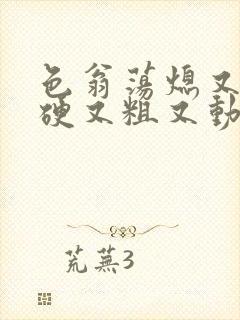 色翁荡熄又
硬又粗又動
荒蕪3